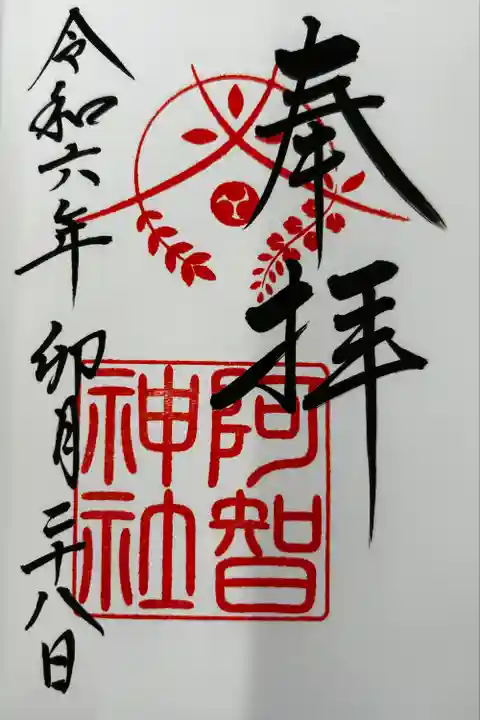 奉拝
阿智
神社
令和六年 卯月二十八日